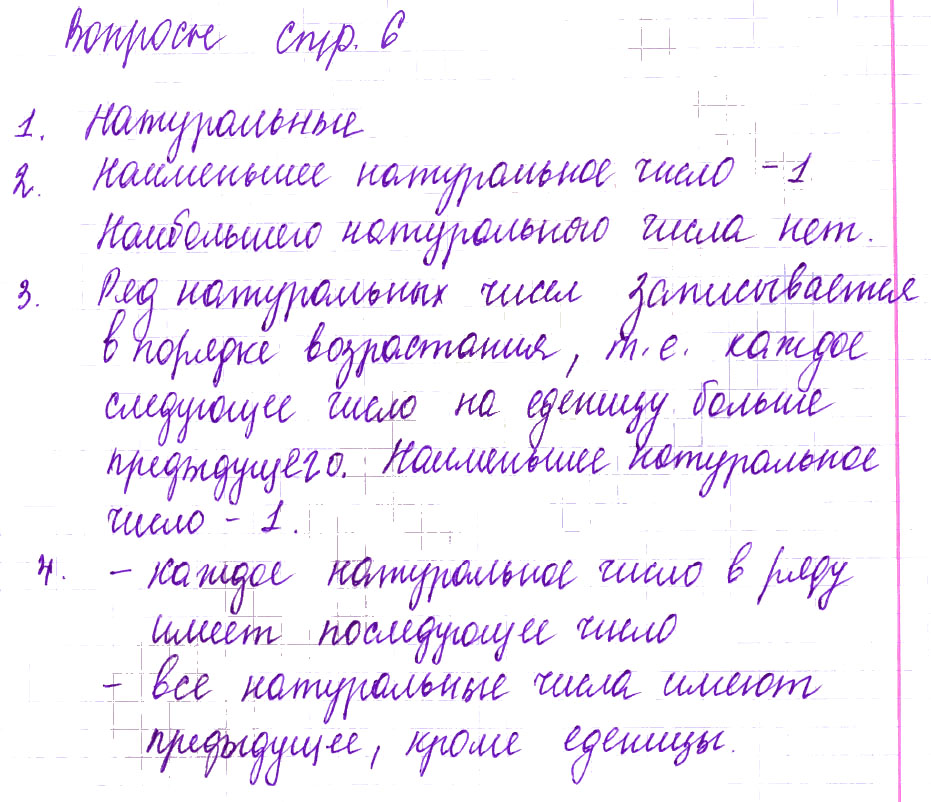 Вопросы стр. 6
1. Натуральные
2. Наименьшее натуральное число - 1
Наибольшего натурального числа нет.
3. Ряд натуральных чисел записывается
в порядке возрастания, т.е. каждое
следующее число на еденицу больше
предждущего. Наименьшее натуральное
число - 1.
4. - каждое натуральное число в ряду
имеет последующее число
- все натуральные числа имеют
предыдущее, кроме еденицы.